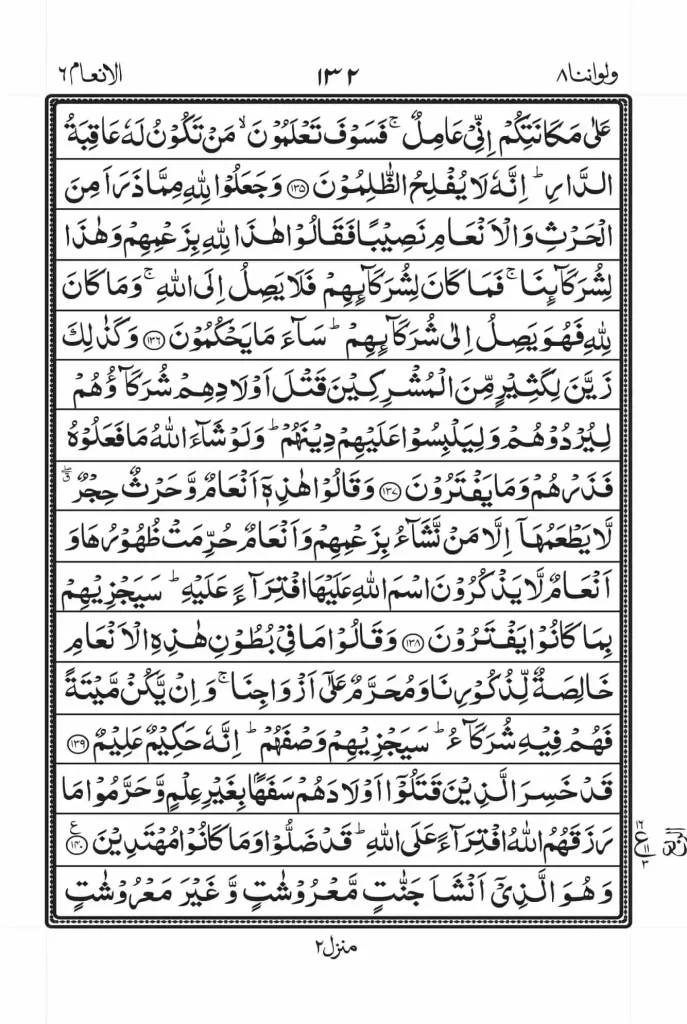 ولواننا ٨ ١٣٢ الانعام ٦
عَلٰى مَكَانَتِكُمْ اِنِّىْ عَامِلٌ ۚ فَسَوْفَ تَعْلَمُوْنَ ۙ مَنْ تَكُوْنُ لَهٗ عَاقِبَةُ
الدَّارِ ؕ اِنَّهٗ لَا يُفْلِحُ الظّٰلِمُوْنَ ﴿۱۳۵﴾ وَجَعَلُوْا لِلّٰهِ مِمَّا ذَرَاَ مِنَ
الْحَرْثِ وَالْاَنْعَامِ نَصِيْبًا فَقَالُوْا هٰذَا لِلّٰهِ بِزَعْمِهِمْ وَهٰذَا
لِشُرَكَآئِنَا ۚ فَمَا كَانَ لِشُرَكَآئِهِمْ فَلَا يَصِلُ اِلَى اللّٰهِ ۚ وَمَا كَانَ
لِلّٰهِ فَهُوَ يَصِلُ اِلٰى شُرَكَآئِهِمْ ؕ سَآءَ مَا يَحْكُمُوْنَ ﴿۱۳۶﴾ وَكَذٰلِكَ
زَيَّنَ لِكَثِيْرٍ مِّنَ الْمُشْرِكِيْنَ قَتْلَ اَوْلَادِهِمْ شُرَكَآؤُهُمْ
لِيُرْدُوْهُمْ وَلِيَلْبِسُوْا عَلَيْهِمْ دِيْنَهُمْ ؕ وَلَوْ شَآءَ اللّٰهُ مَا فَعَلُوْهُ
فَذَرْهُمْ وَمَا يَفْتَرُوْنَ ﴿۱۳۷﴾ وَقَالُوْا هٰذِهٖۤ اَنْعَامٌ وَّحَرْثٌ حِجْرٌ ۖق
لَّا يَطْعَمُهَاۤ اِلَّا مَنْ نَّشَآءُ بِزَعْمِهِمْ وَاَنْعَامٌ حُرِّمَتْ ظُهُوْرُهَا وَ
اَنْعَامٌ لَّا يَذْكُرُوْنَ اسْمَ اللّٰهِ عَلَيْهَا افْتِرَآءً عَلَيْهِ ؕ سَيَجْزِيْهِمْ
بِمَا كَانُوْا يَفْتَرُوْنَ ﴿۱۳۸﴾ وَقَالُوْا مَا فِىْ بُطُوْنِ هٰذِهِ الْاَنْعَامِ
خَالِصَةٌ لِّذُكُوْرِنَا وَمُحَرَّمٌ عَلٰٓى اَزْوَاجِنَا ۚ وَاِنْ يَّكُنْ مَّيْتَةً
فَهُمْ فِيْهِ شُرَكَآءُ ؕ سَيَجْزِيْهِمْ وَصْفَهُمْ ؕ اِنَّهٗ حَكِيْمٌ عَلِيْمٌ ﴿۱۳۹﴾
قَدْ خَسِرَ الَّذِيْنَ قَتَلُوْۤا اَوْلَادَهُمْ سَفَهًاۢ بِغَيْرِ عِلْمٍ وَّحَرَّمُوْا مَا
رَزَقَهُمُ اللّٰهُ افْتِرَآءً عَلَى اللّٰهِ ؕ قَدْ ضَلُّوْا وَمَا كَانُوْا مُهْتَدِيْنَ ﴿۱۴۰﴾ ع
١٦ ع ١١ ٣
وَهُوَ الَّذِىْۤ اَنْشَاَ جَنّٰتٍ مَّعْرُوْشٰتٍ وَّغَيْرَ مَعْرُوْشٰتٍ
منزل ٢